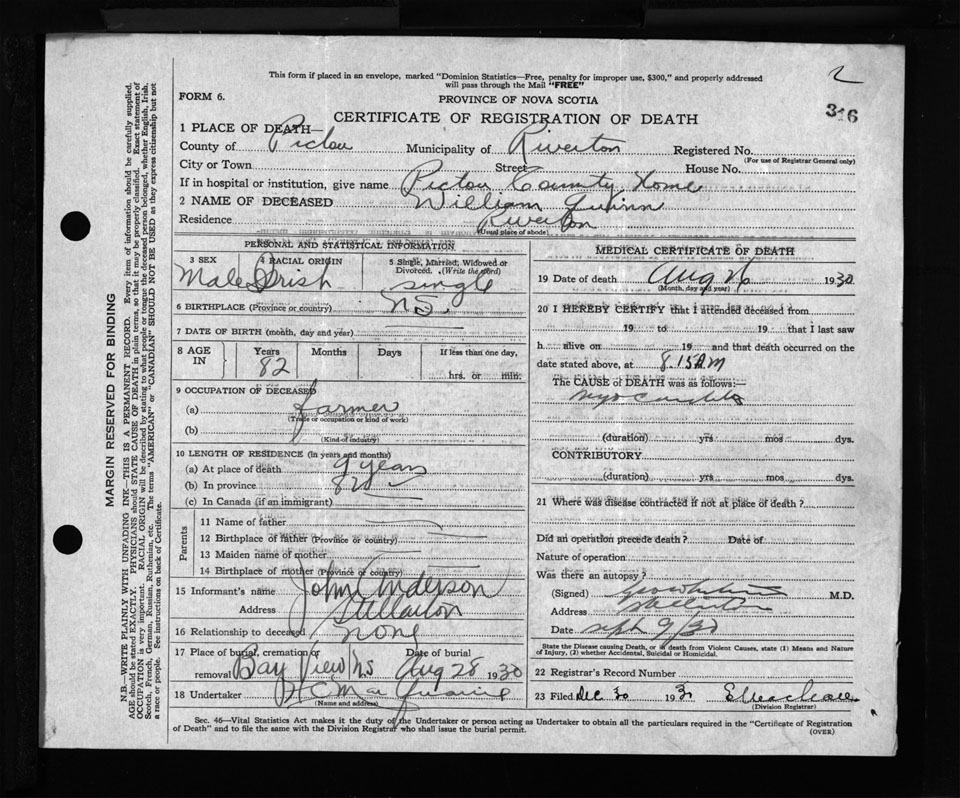 This form if placed in an envelope, marked "Dominion Statistics—Free, penalty for improper use, $300," and properly addressed
will pass through the Mail "FREE"
2
FORM 6.
PROVINCE OF NOVA SCOTIA
316
CERTIFICATE OF REGISTRATION OF DEATH
1 PLACE OF DEATH—
County of Pictou Municipality of Riverton Registered No.
(For use of Registrar General only)
City or Town Street House No.
If in hospital or institution, give name Pictou County Home
2 NAME OF DECEASED William Quinn
Residence Riverton
(Usual place of abode)
PERSONAL AND STATISTICAL INFORMATION
3 SEX 4 RACIAL ORIGIN 5 Single, Married, Widowed or
Divorced. (Write the word)
Male Irish single
6 BIRTHPLACE (Province or country) N.S.
7 DATE OF BIRTH (month, day and year)
8 AGE IN Years Months Days If less than one day,
82 hrs. or min.
9 OCCUPATION OF DECEASED
(a) farmer
(Trade or occupation or kind of work)
(b)
(Kind of industry)
10 LENGTH OF RESIDENCE (in years and months)
(a) At place of death 9 years
(b) In province 82
(c) In Canada (if an immigrant)
Parents
11 Name of father
12 Birthplace of father (Province or country)
13 Maiden name of mother
14 Birthplace of mother (Province or country)
15 Informant's name John Anderson
Address Stellarton
16 Relationship to deceased none
17 Place of burial, cremation or removal Bay View N.S. Date of burial Aug 28 1930
18 Undertaker
(Name and address)
MEDICAL CERTIFICATE OF DEATH
19 Date of death Aug 26 1930
(Month, day and year)
20 I HEREBY CERTIFY that I attended deceased from
19 to 19 that I last saw
h alive on 19 and that death occurred on the
date stated above, at 8.15 AM
The CAUSE of DEATH was as follows:—
Myocarditis
(duration) yrs mos dys.
CONTRIBUTORY
(duration) yrs mos dys.
21 Where was disease contracted if not at place of death?
Did an operation precede death? Date of
Nature of operation
Was there an autopsy?
(Signed) M.D.
Address Stellarton
Date Sept 9/30
State the Disease causing Death, or in death from Violent Causes, state (1) Means and Nature
of Injury, (2) whether Accidental, Suicidal or Homicidal.
22 Registrar's Record Number
23 Filed Dec 30 193
(Division Registrar)
Sec. 46—Vital Statistics Act makes it the duty of the Undertaker or person acting as Undertaker to obtain all the particulars required in the "Certificate of Registration
of Death" and to file the same with the Division Registrar who shall issue the burial permit.
(OVER)
MARGIN RESERVED FOR BINDING
N.B.—WRITE PLAINLY WITH UNFADING INK.—THIS IS A PERMANENT RECORD. Every item of information should be carefully supplied.
AGE should be stated EXACTLY. PHYSICIANS should STATE CAUSE OF DEATH in plain terms, so that it may be properly classified. Exact statement of
OCCUPATION is very important. RACIAL ORIGIN will be described by stating to what people or tongue the deceased person belonged, whether English, Irish,
Scotch, French, German, Russian, Ruthenian, etc. The terms "AMERICAN" or "CANADIAN" SHOULD NOT BE USED as they express citizenship but not
a race or people. See instructions on back of Certificate.